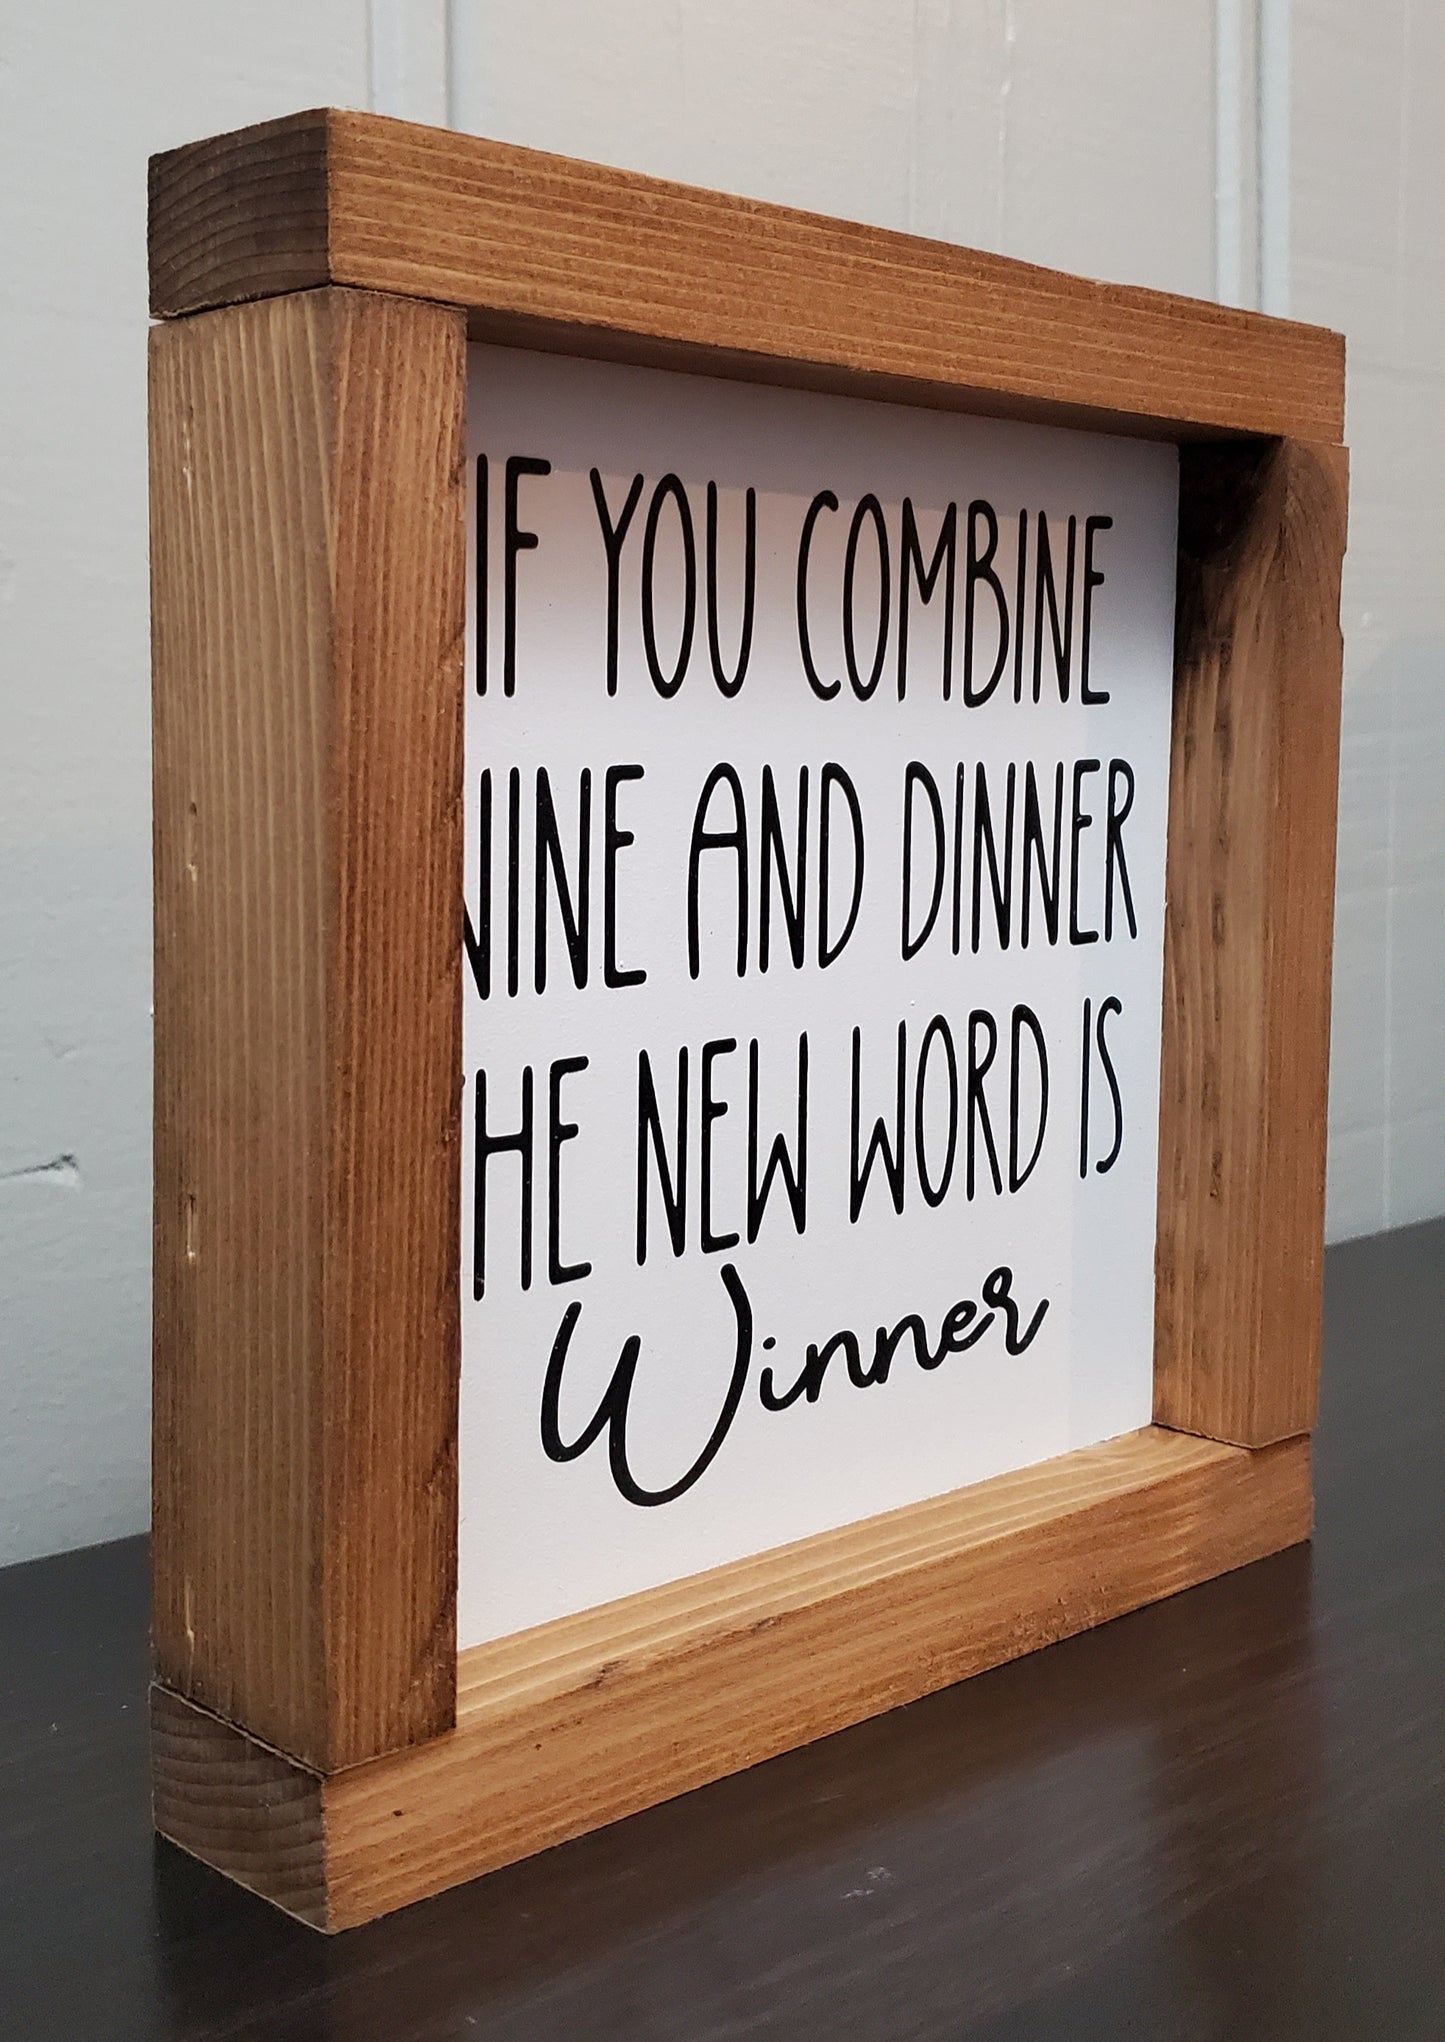 IF YOU COMBINE
WINE AND DINNER
THE NEW WORD IS
Winner